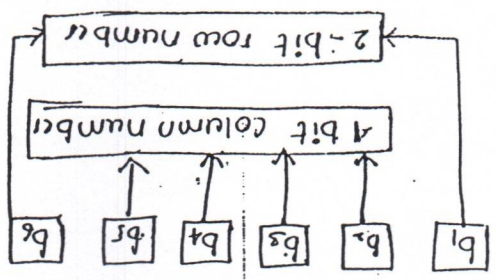 b1 b2 b3 b4 b5 b6
4 bit column number
2-bit row number